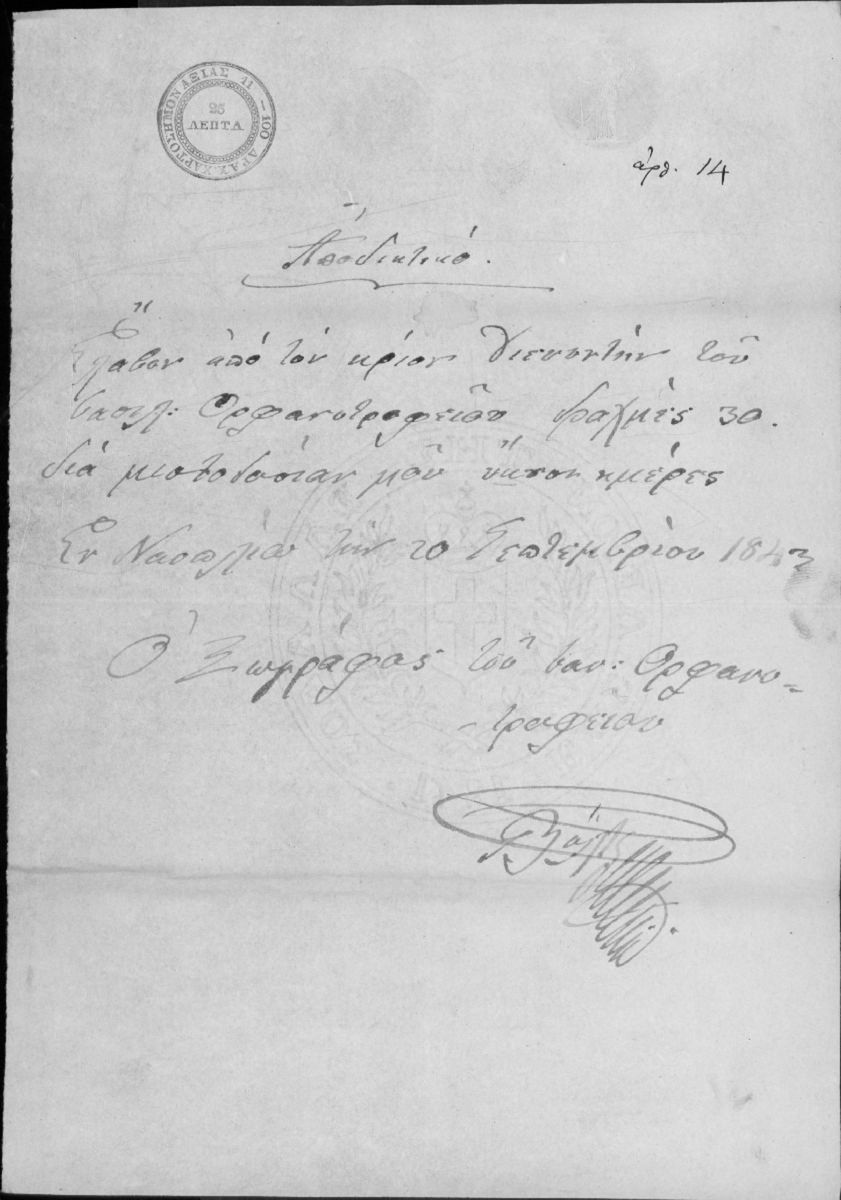 ΧΑΡΤΟΣΗΜΟΝ ΑΞΙΑΣ 11 - 100 ΔΡΑΣ.
25
ΛΕΠΤΑ
ἀρθ. 14
Ἀποδικτικό.
Ἔλαβον ἀπό τόν κριον Διευθυντήν τοῦ
βασιλ: Ορφανοτροφείου δραχμές 30.
διά μιστοδοσίαν μοῦ ἡμέρες
Εν Ναυπλίω τήν 10 Σεπτεμβρίου 1843
Ὁ Ζωγράφος τοῦ βασ: Ορφανο-
τροφείου